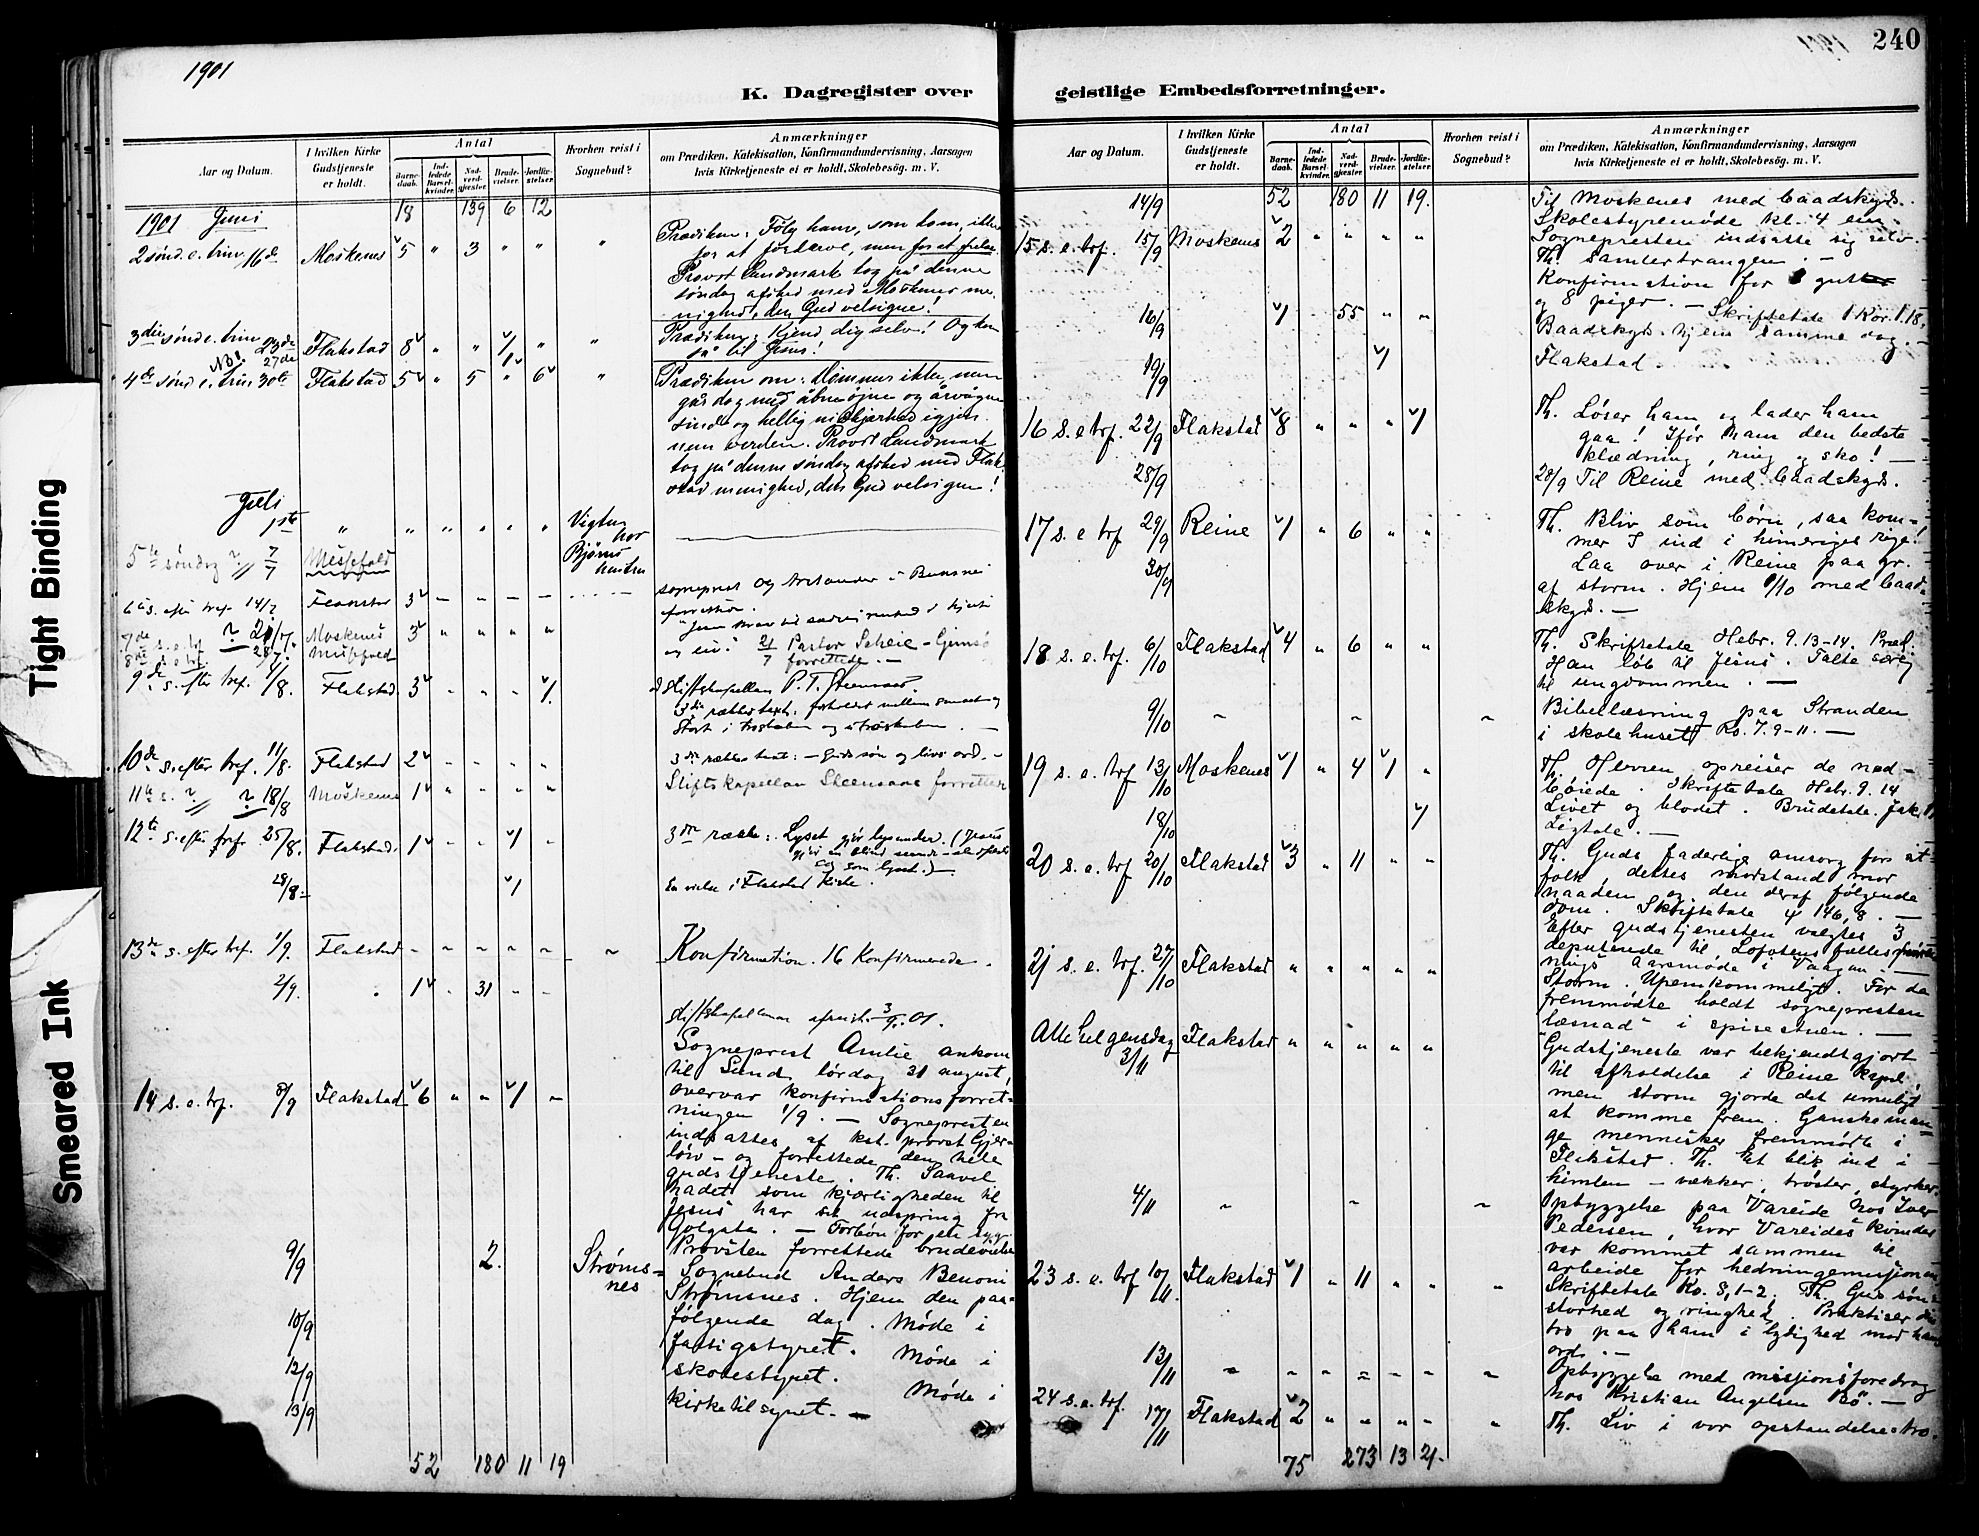 1901
240
K. Dagregister over geistlige Embedsforretninger.
Aar og Datum.
I hvilken Kirke Gudstjeneste er holdt.
Antal
Barnedaab.
Indledede Barselkvinder.
Nadverdgjester.
Brudevielser.
Jordfæstelser.
Hvorhen reist i Sognebud?
Anmærkninger
om Prædiken, Katekisation, Konfirmandundervisning, Aarsagen
hvis Kirketjeneste ei er holdt, Skolebesøg. m. V.
1901 Juni 18 139 6 12
2 sønd. e. trin. 16de Moskenes 5 " 3 " " "
Prædiken: Følg ham, som kom, ikke
for at fordærve, men for at frelse.
Provst Landmark tog på denne
søndag afsked med Moskenes me-
nighed, den Gud velsigne!
3die sønd. e. trin. 23de Flakstad 8 " " 1 " "
NB! 27de 1
Prædiken: Kjend dig selv! Og kom
så til Jesus!
4de sønd. e. trin. 30te Flakstad 5 " 5 " 6 "
Prædiken om: Dømmer ikke, men
går dog med åbne øjne og årvågen
sind og hellig nidkjærhed igjen-
nem verden. Provst Landmark
tog på denne søndag afsked med Flak-
stad menighed, den Gud velsigne!
Juli
1ste " " " " " "
Bjørns
hustru
5te søndag 7/7 Messefald
6te s. efter tref. 14/7 3 - - - -
7de s. e. trf. 21/7 Moskenes 3 " " " "
8de s. e. trf. 28/7. Messefald
21/7 Pastor Scheie - Gimsø
forrettede. -
9de s. efter tref. 4/8. Flakstad 3 - - - 1.
Stiftskapellan P. T. Steensaas.
10de s. efter tref. 11/8. Flakstad 2 - - - -
3die rækkes text: - Guds søn og livs ord. -
11te s. 18/8 Moskenes 1 " " " "
Stiftskapellan Steensaas forrettede
12te s. efter tref. 25/8. Flakstad. 1 - - 1 -
3die række: Lyset gjør lysender. (Jesus
28/8 1
En vielse i Flakstad Kirke.
13de s. efter tref. 1/9. Flakstad - - - - - -
Konfirmation. 16 Konfirmerede.
2/9. 1 - 31 - -
Stiftskapellanen afreist 3/9. 01.
Sogneprest Amlie ankom
til Sund lørdag 31 august,
14 s. e. trf. 8/9 Flakstad 6 " " 1 "
overvar konfirmationsforret-
ningen 1/9. - Sognepresten
indsattes af kst. provst Gjer-
løw - og forrettede den hele
gudstjeneste. Th. Saavel
hadet som kjærligheden til
Jesus har sit udspring fra
Golgata. - Forbøn for en syg.
Provsten forrettede brudevielse
9/9 2. Strøms-
nes
Sognebud Anders Benoni
Strømsnes. Hjem den paa-
følgende dag. Møde i
10/9
fattigstyret. Møde i
12/9
skolestyret. Møde i
13/9
kirketilsynet. -
52 180 11 19
14/9 52 180 11 19.
Til Moskenes med baadskyds.
Skolestyremøde kl. 4 em.
Sognepresten indsatte sig selv.
15 s. e. trf. 15/9 Moskenes 2 " " " "
Th. Samlertrangen. -
Konfirmation for gutter
og 8 piger. - Skriftetale 1 Kor. 1.18.
16/9 1 55 " "
Baadskyds hjem samme dag. -
19/9 1
Flakstad.
16 s. e. trf. 22/9 Flakstad 8 " " " 1
Th. Løser ham og lader ham
gaa! Ifør ham den bedste
klædning, ring og sko! -
28/9
28/9 Til Reine med baadskyds.
17 s. e. trf. 29/9 Reine 1 " 6 " "
Th. Bliv som børn, saa kom-
mer I ind i himeriges rige!
30/9
Laa over i Reine paa gr.
af storm. Hjem 1/10 med baad-
skyds. -
18 s. e. trf. 6/10 Flakstad 4 " 6 " "
Th. Skriftetale Hebr. 9. 13-14. Præd.
Han løb til Jesus. Talte særlig
til ungdommen. -
9/10 " " "
Bibellæsning paa Stranden
i skolehuset Ro. 7. 9-11. -
19 s. e. trf. 13/10 Moskenes 1 " 4 1 "
Th. Herren opreiser de ned-
bøiede. Skriftetale Hebr. 9. 14
Livet og blodet. Brudetale.
18/10 1
Ligtale. -
20 s. e. trf. 20/10 Flakstad 3 " 11 " "
Th. Guds faderlige omsorg for sit
folk, dettes modstand mod
naaden og den deraf følgende
dom. Skriftetale ψ 146, 8. -
Efter gudstjenesten valgtes 3
deputerede til Lofotens fælles
nings aarsmøde i Vaagan. -
21 s. e. trf. 27/10 Flakstad " " " " "
Storm. Upemkommeligt. For de
fremmødte holdt sognepresten
"læsnad" i spisestuen. -
Alle helgensdag 3/11 Flakstad " " " " "
Gudstjeneste var bekjendtgjort
til afholdelse i Reine kapel,
men storm gjorde det umuligt
at komme frem. Ganske man-
ge mennesker fremmødte i
Flakstad. Th. Et blik ind i
himlen - vækker, trøster, styrker.
4/11 " " "
Opbyggelse paa Vareide hos Iver
Pedersen, hvor Vareides kvinder
var kommet sammen til
arbeide for hedningemissjonen.
23 s. e. trf. 10/11. Flakstad 1 " 11 " " "
Skriftetale Ro. 8, 1-2. Th. Guds søns
storhed og ringhed. Praktiser din
tro paa ham i lydighed mod hans
ord. -
13/11 " " " " " " "
Opbyggelse med missjonsforedrag
hos Kristian Angelsen Bø. -
24 s. e. trf. 17/11 Flakstad 2 " " " " "
Th. Liv i vor opstandelsestro.
75 273 13 21.
Tight Binding
Smeared Ink